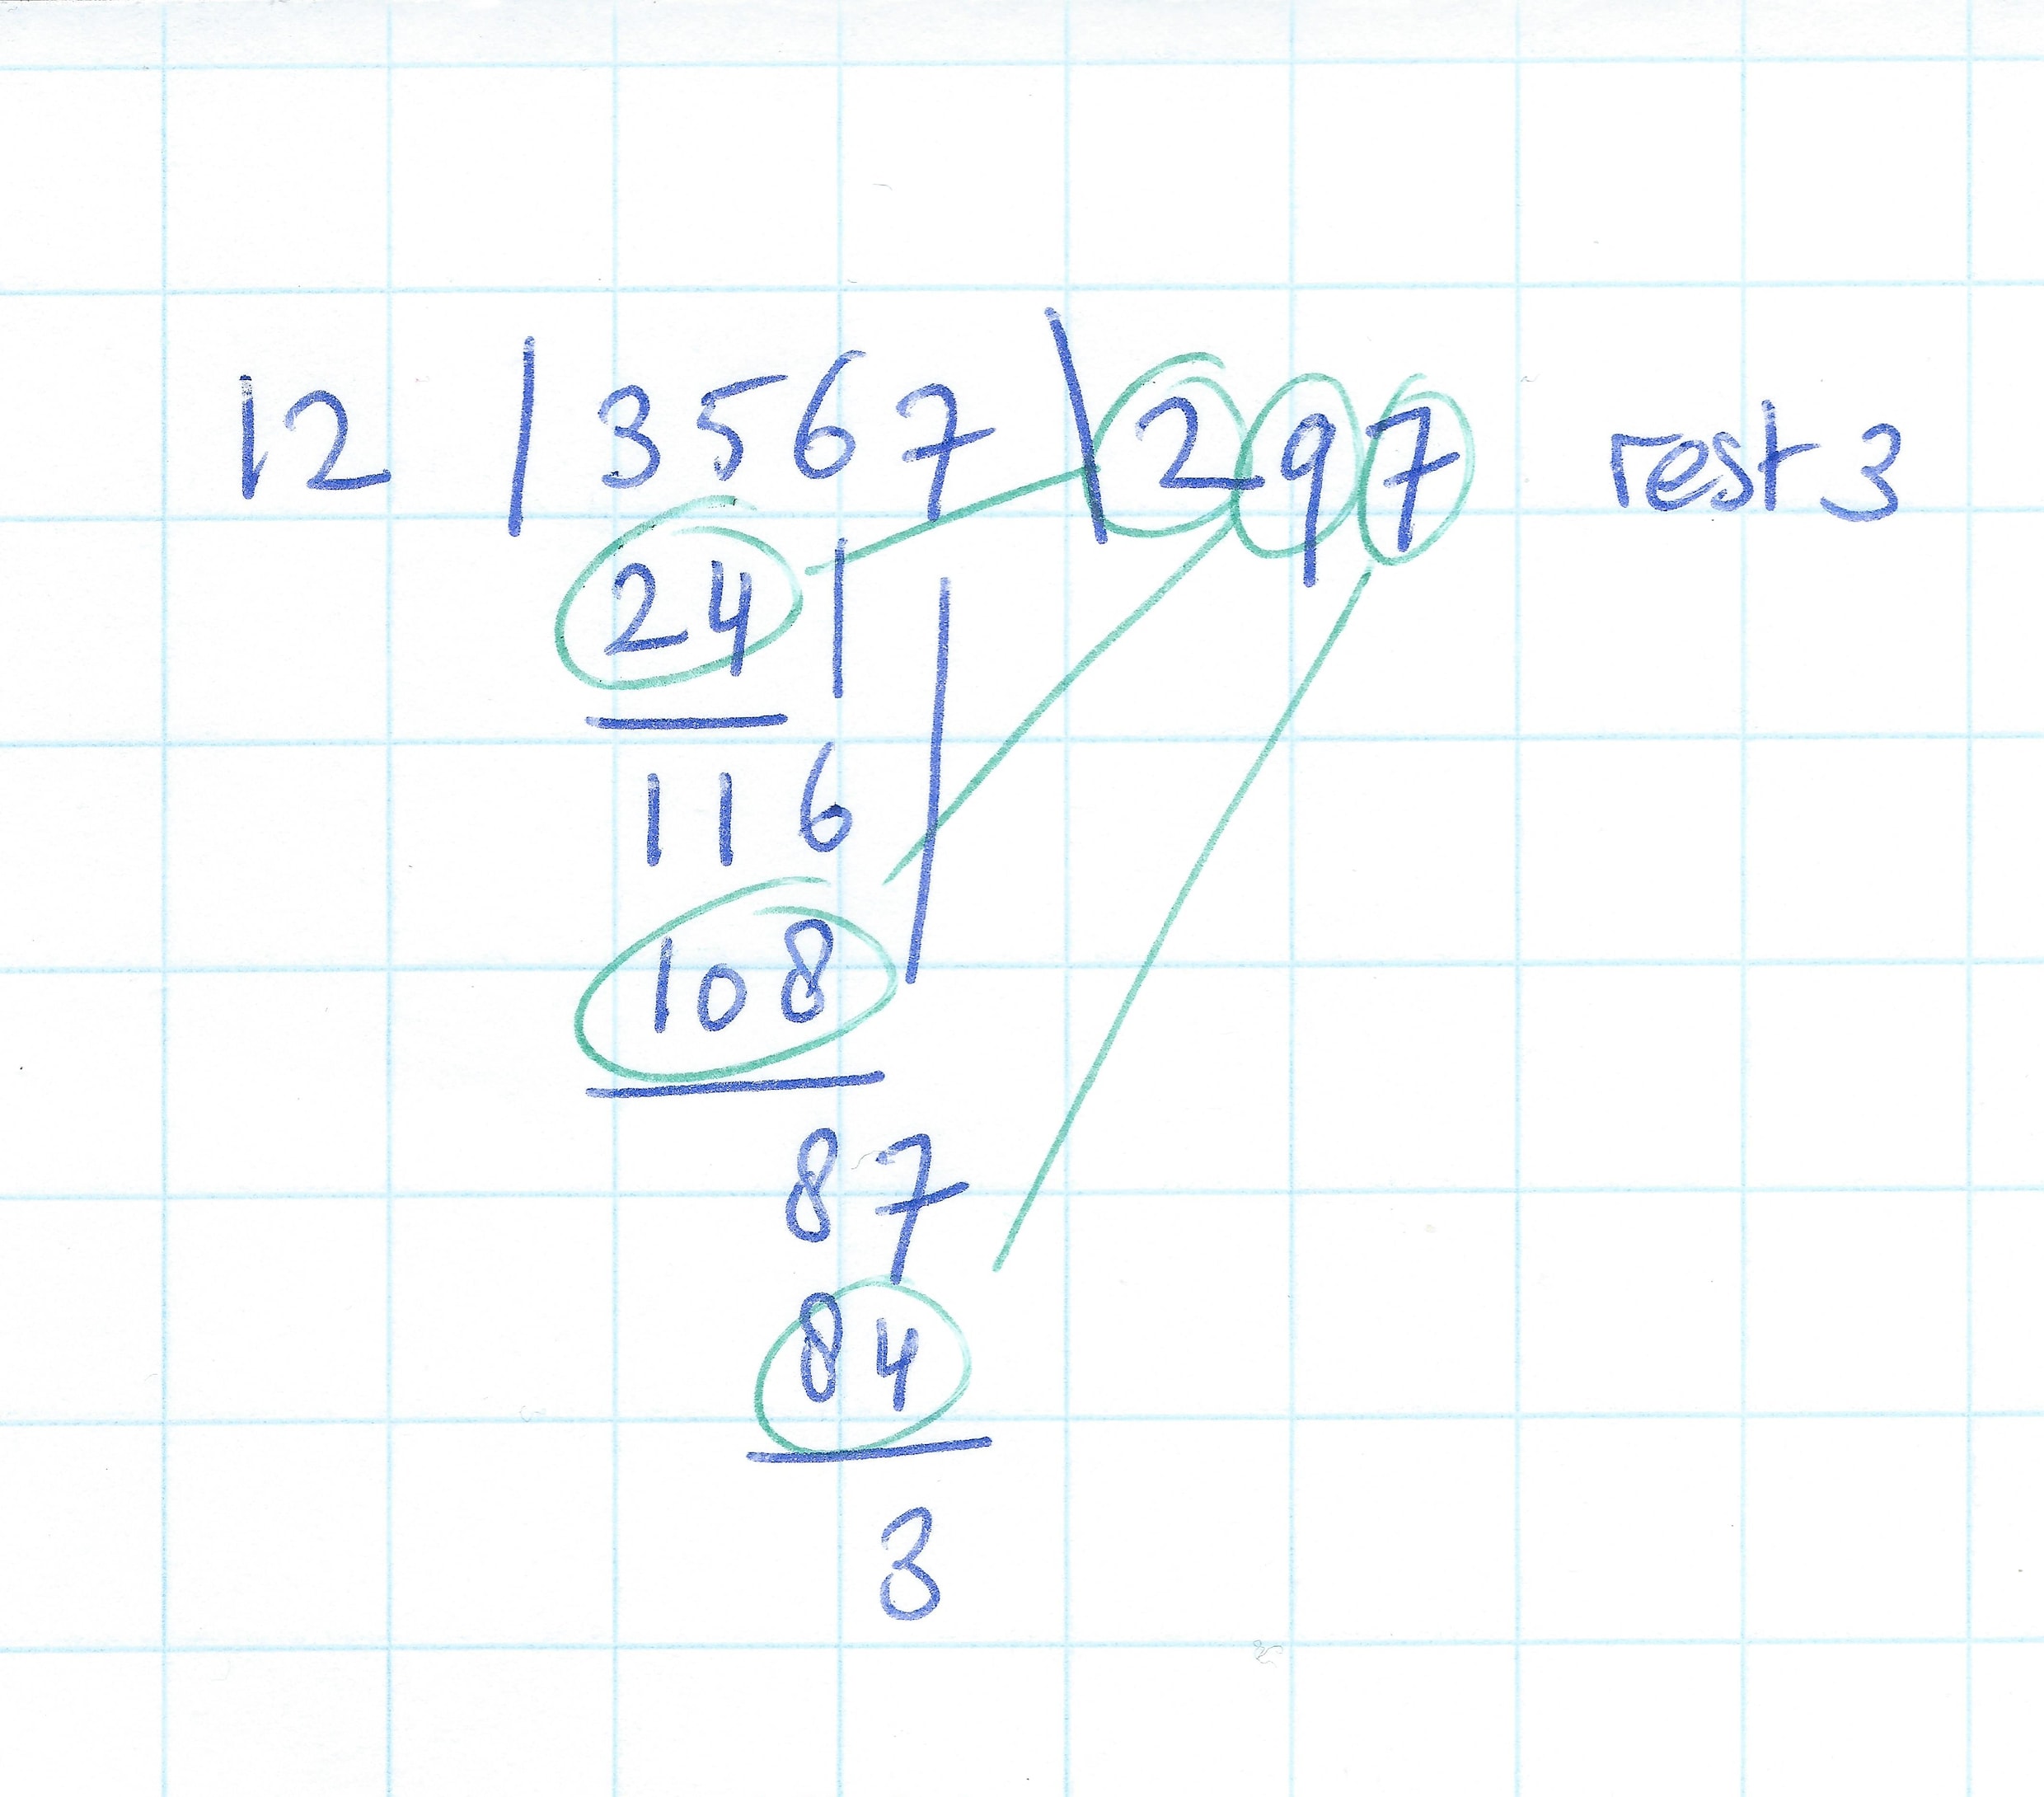 12 | 3567 \ 297 rest 3
24
116
108
87
84
3